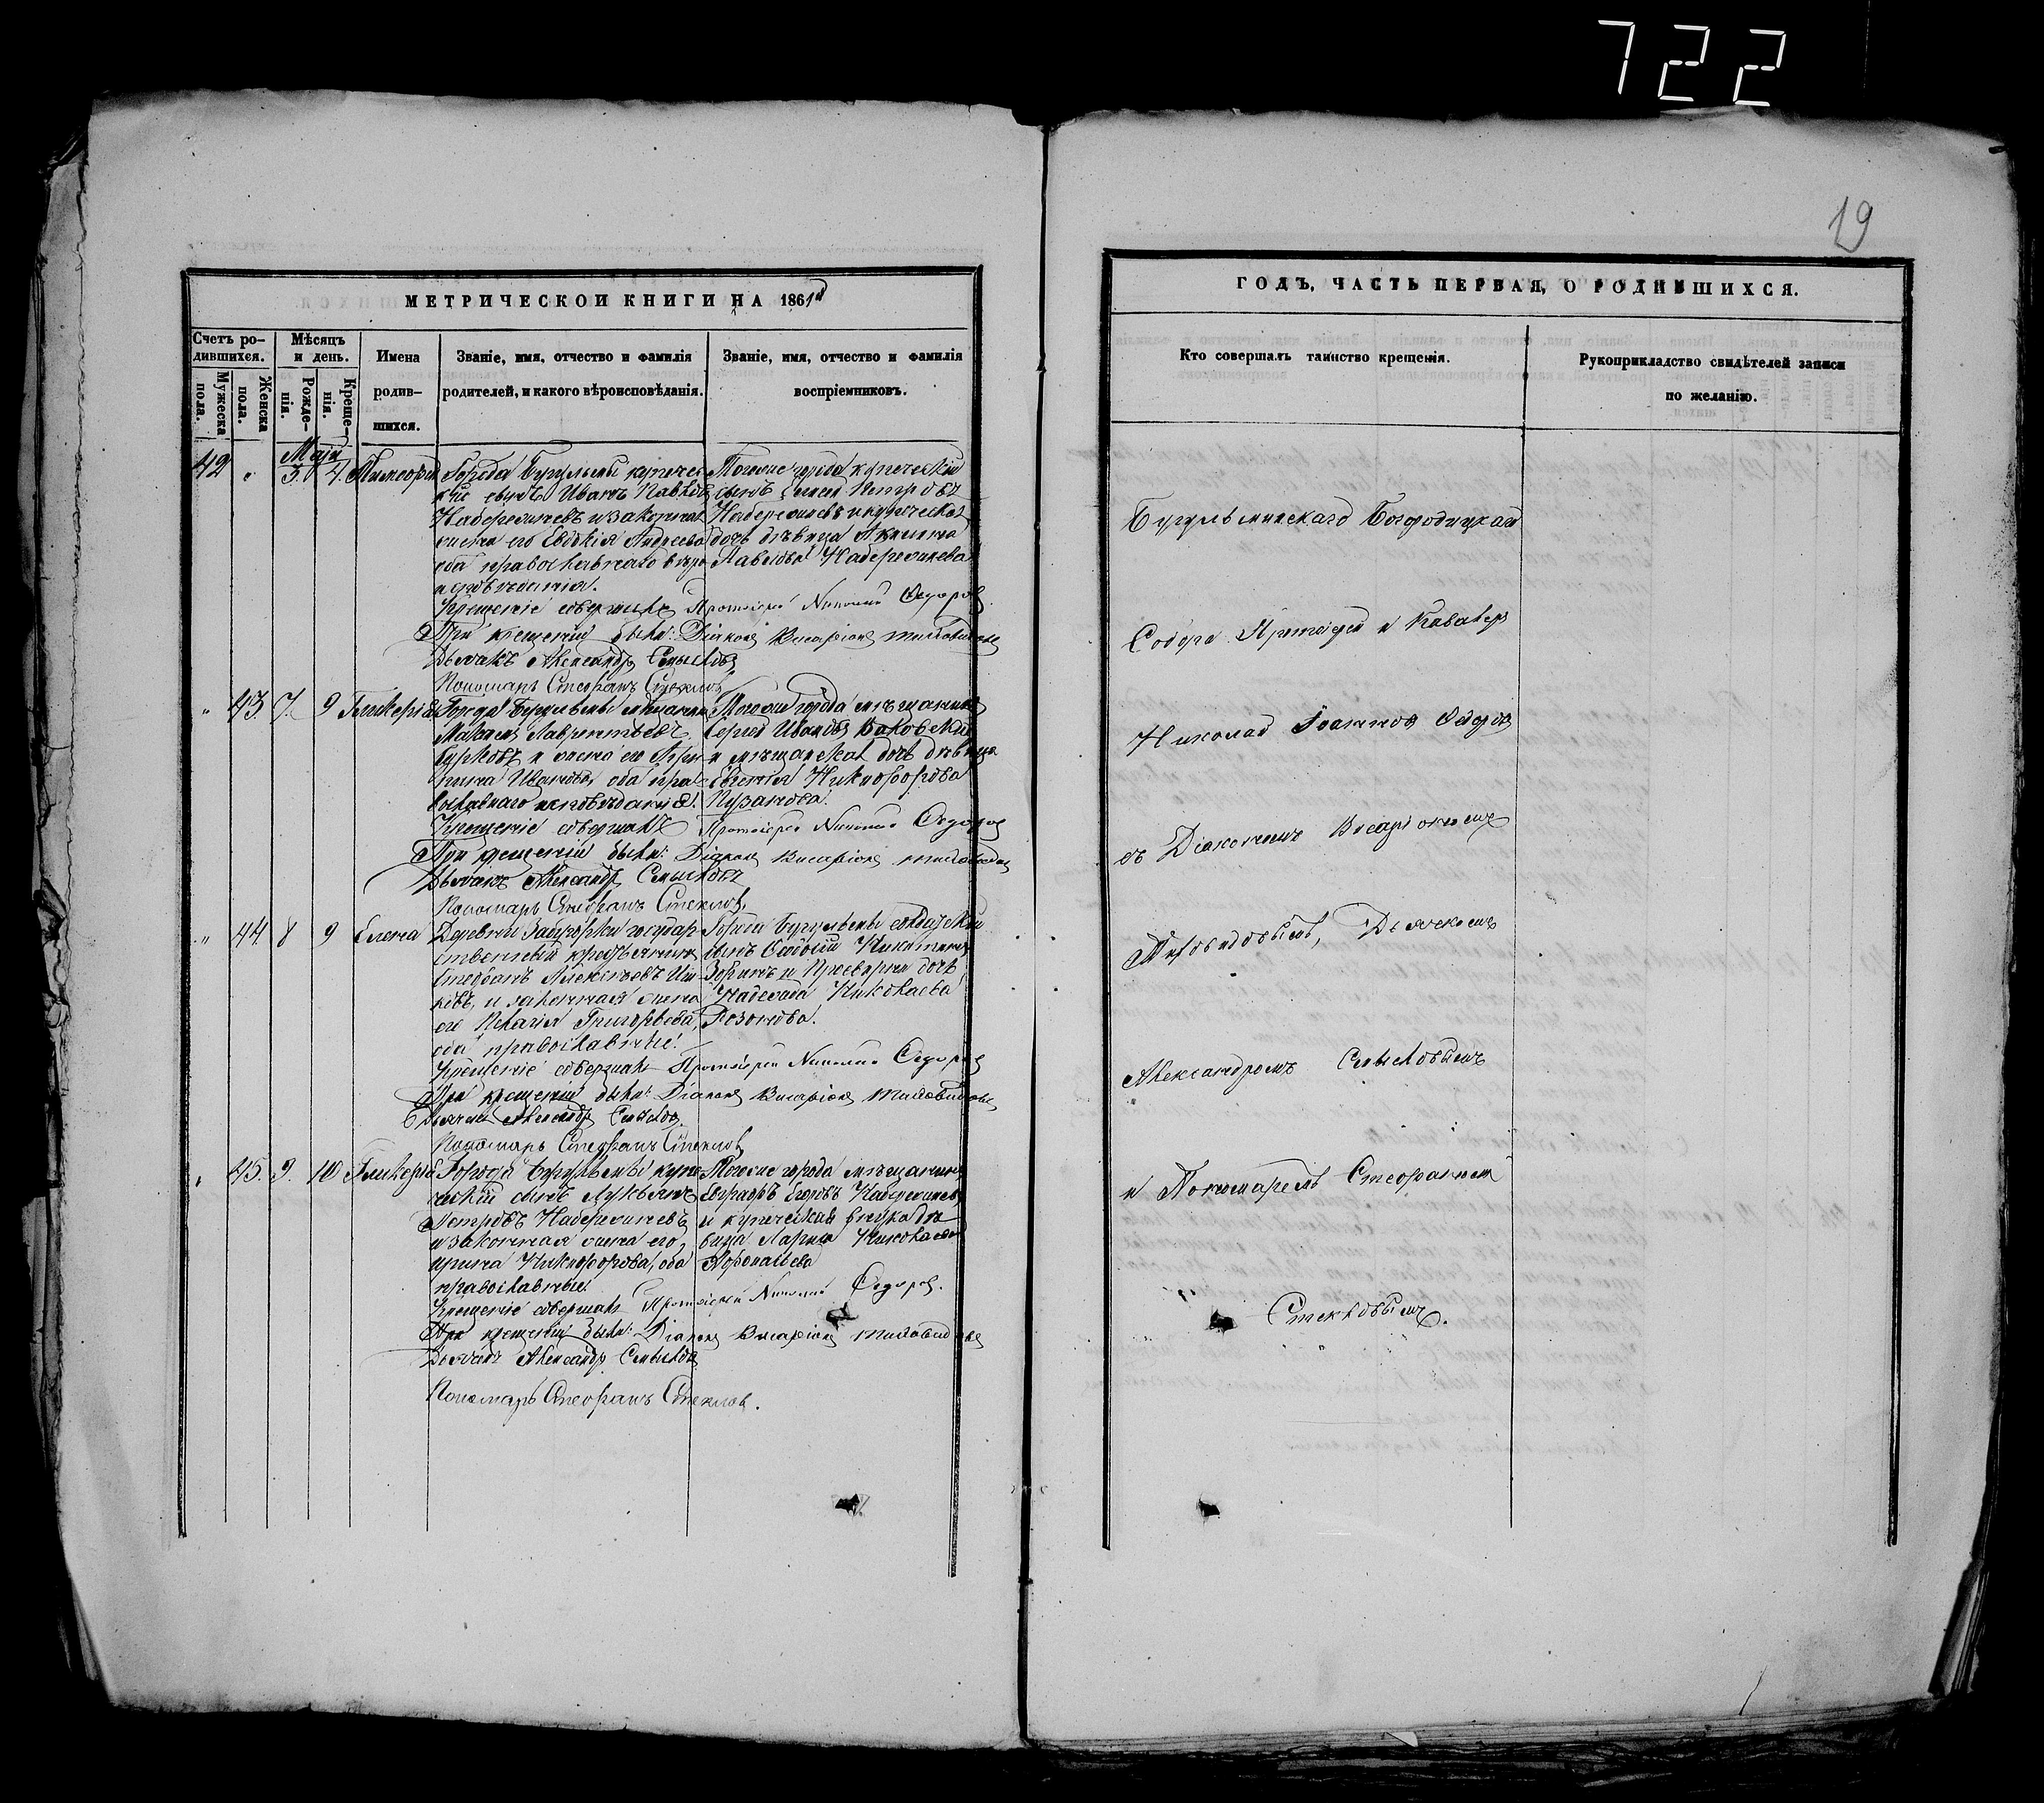 722
19
МЕТРИЧЕСКОЙ КНИГИ НА 1861й
Счетъ ро-
дившихся.
Мужеска
пола.
Женска
пола.
Мѣсяцъ
и день.
Рожде-
нія.
Креще-
нія.
Имена
родив-
шихся.
Званіе, имя, отчество и фамилія
родителей, и какого вѣроисповѣданія.
Званіе, имя, отчество и фамилія
воспріемниковъ.
Май
42 " 3. 4. Тимофей
Города Бугульмы купечес-
кій сынъ Иванъ Павловъ
Набережневъ и законная
жена его Евдокія Андреева
оба православнаго вѣро
исповѣданія.
Тогоже города купеческій
сынъ Петровъ
Набережневъ и купеческая
дочь дѣвица Акилина
Павлова Набережнева
Крещеніе совершалъ Протоіерей Николай Федоровъ
При крещеніи были: Діаконъ Висаріонъ Миловидовъ
Дьячекъ Александръ Смысловъ
Пономарь Стефанъ Стекловъ
" 43. 7. 9 Гликерія
Города Бугульмы мѣщанинъ
Максимъ Лаврентьевъ
Бурковъ и жена его Агри-
пина Иванова, оба пра-
вославнаго исповѣданія.
Тогоже города мѣщанинъ
Сергей Ивановъ
и мѣщанская дочь дѣвица
Евгенія Никифорова
Пузанова.
Крещеніе совершалъ Протоіерей Николай Федоровъ
При крещеніи были: Діаконъ Висаріонъ Миловидовъ
Дьячекъ Александръ Смысловъ
Пономарь Стефанъ Стекловъ
" 44 8 9 Елена
Деревни Забугоровки государ-
ственный крестьянинъ
Стефанъ Алексѣевъ
и законная жена
его Пелагія Григорьева,
оба православные.
Города Бугульмы солдатскій
сынъ Никитинъ
Зоринъ и дочь
Надежда Николаева
Розонова.
Крещеніе совершалъ Протоіерей Николай Федоровъ
При крещеніи были: Діаконъ Висаріонъ Миловидовъ
Дьячекъ Александръ Смысловъ
Пономарь Стефанъ Стекловъ
" 45. 9. 10 Гликерія
Города Бугульмы купе-
ческій сынъ Лукьянъ
Петровъ Набережневъ
и законная жена его,
Ирина Никифорова, оба
православные.
Тогоже города мѣщанинъ
Евграфъ Егоровъ Набережневъ
и купеческая внука дѣ-
вица Лариса Николаева
Афонасьева
Крещеніе совершалъ Протоіерей Николай Федоровъ.
При крещеніи были: Діаконъ Висаріонъ Миловидовъ
Дьячекъ Александръ Смысловъ
Пономарь Стефанъ Стекловъ.
ГОДЪ, ЧАСТЬ ПЕРВАЯ, О РОДИВШИХСЯ.
Кто совершалъ таинство крещенія.
Рукоприкладство свидѣтелей записи
по желанію.
Бугульминскаго Богородицкаго
Собора Протоіерей и Кавалеръ
Николай Іоанновъ Федоровъ
съ Діакономъ Висаріономъ
Миловидовымъ, Дьячкомъ
Александромъ Смысловымъ
и Пономаремъ Стефаномъ
Стекловымъ.